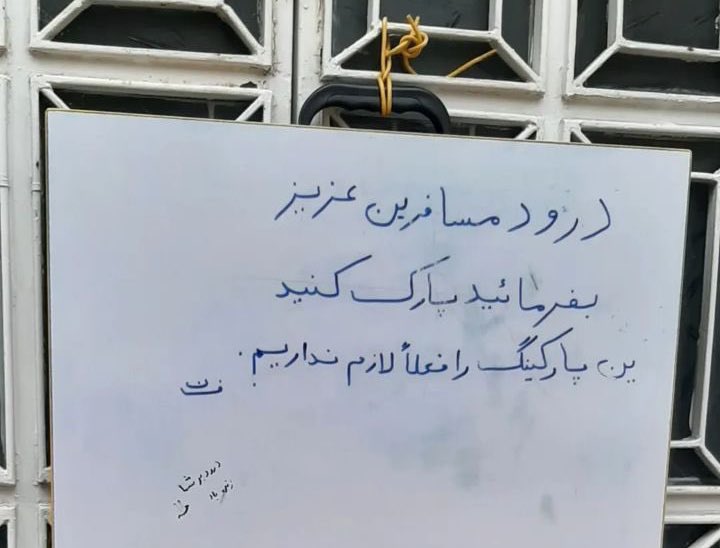 درود مسافرین عزیز
بفرمائید پارک کنید
ین پارکینگ را فعلأ لازم نداریم.
درود بر شما